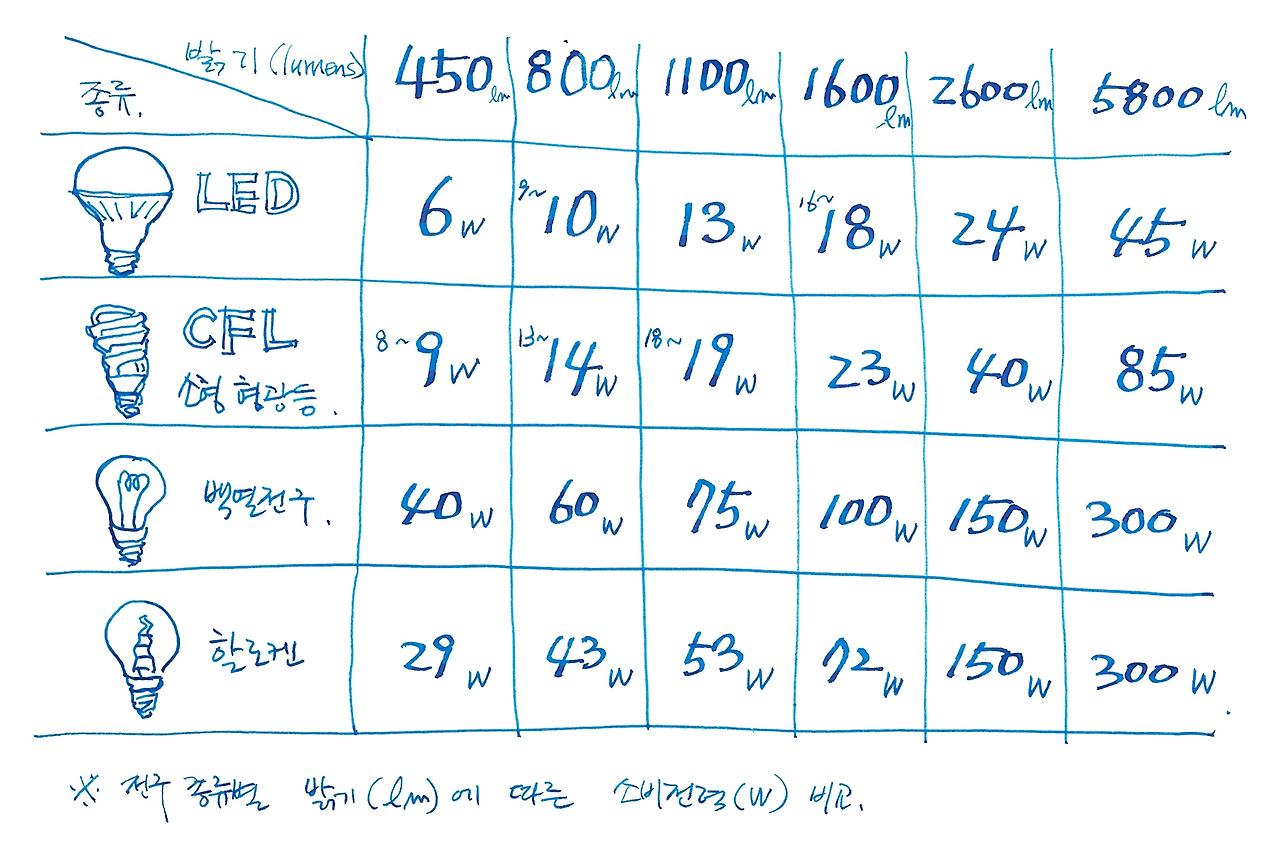 밝기 (lumens) 450lm 800lm 1100lm 1600lm 2600lm 5800lm
종류.
LED 6W 9~10W 13W 16~18W 24W 45W
CFL 8~9W 13~14W 18~19W 23W 40W 85W
소형 형광등.
백열전구. 40W 60W 75W 100W 150W 300W
할로겐 29W 43W 53W 72W 150W 300W
※ 전구 종류별 밝기(lm)에 따른 소비전력(W) 비교.